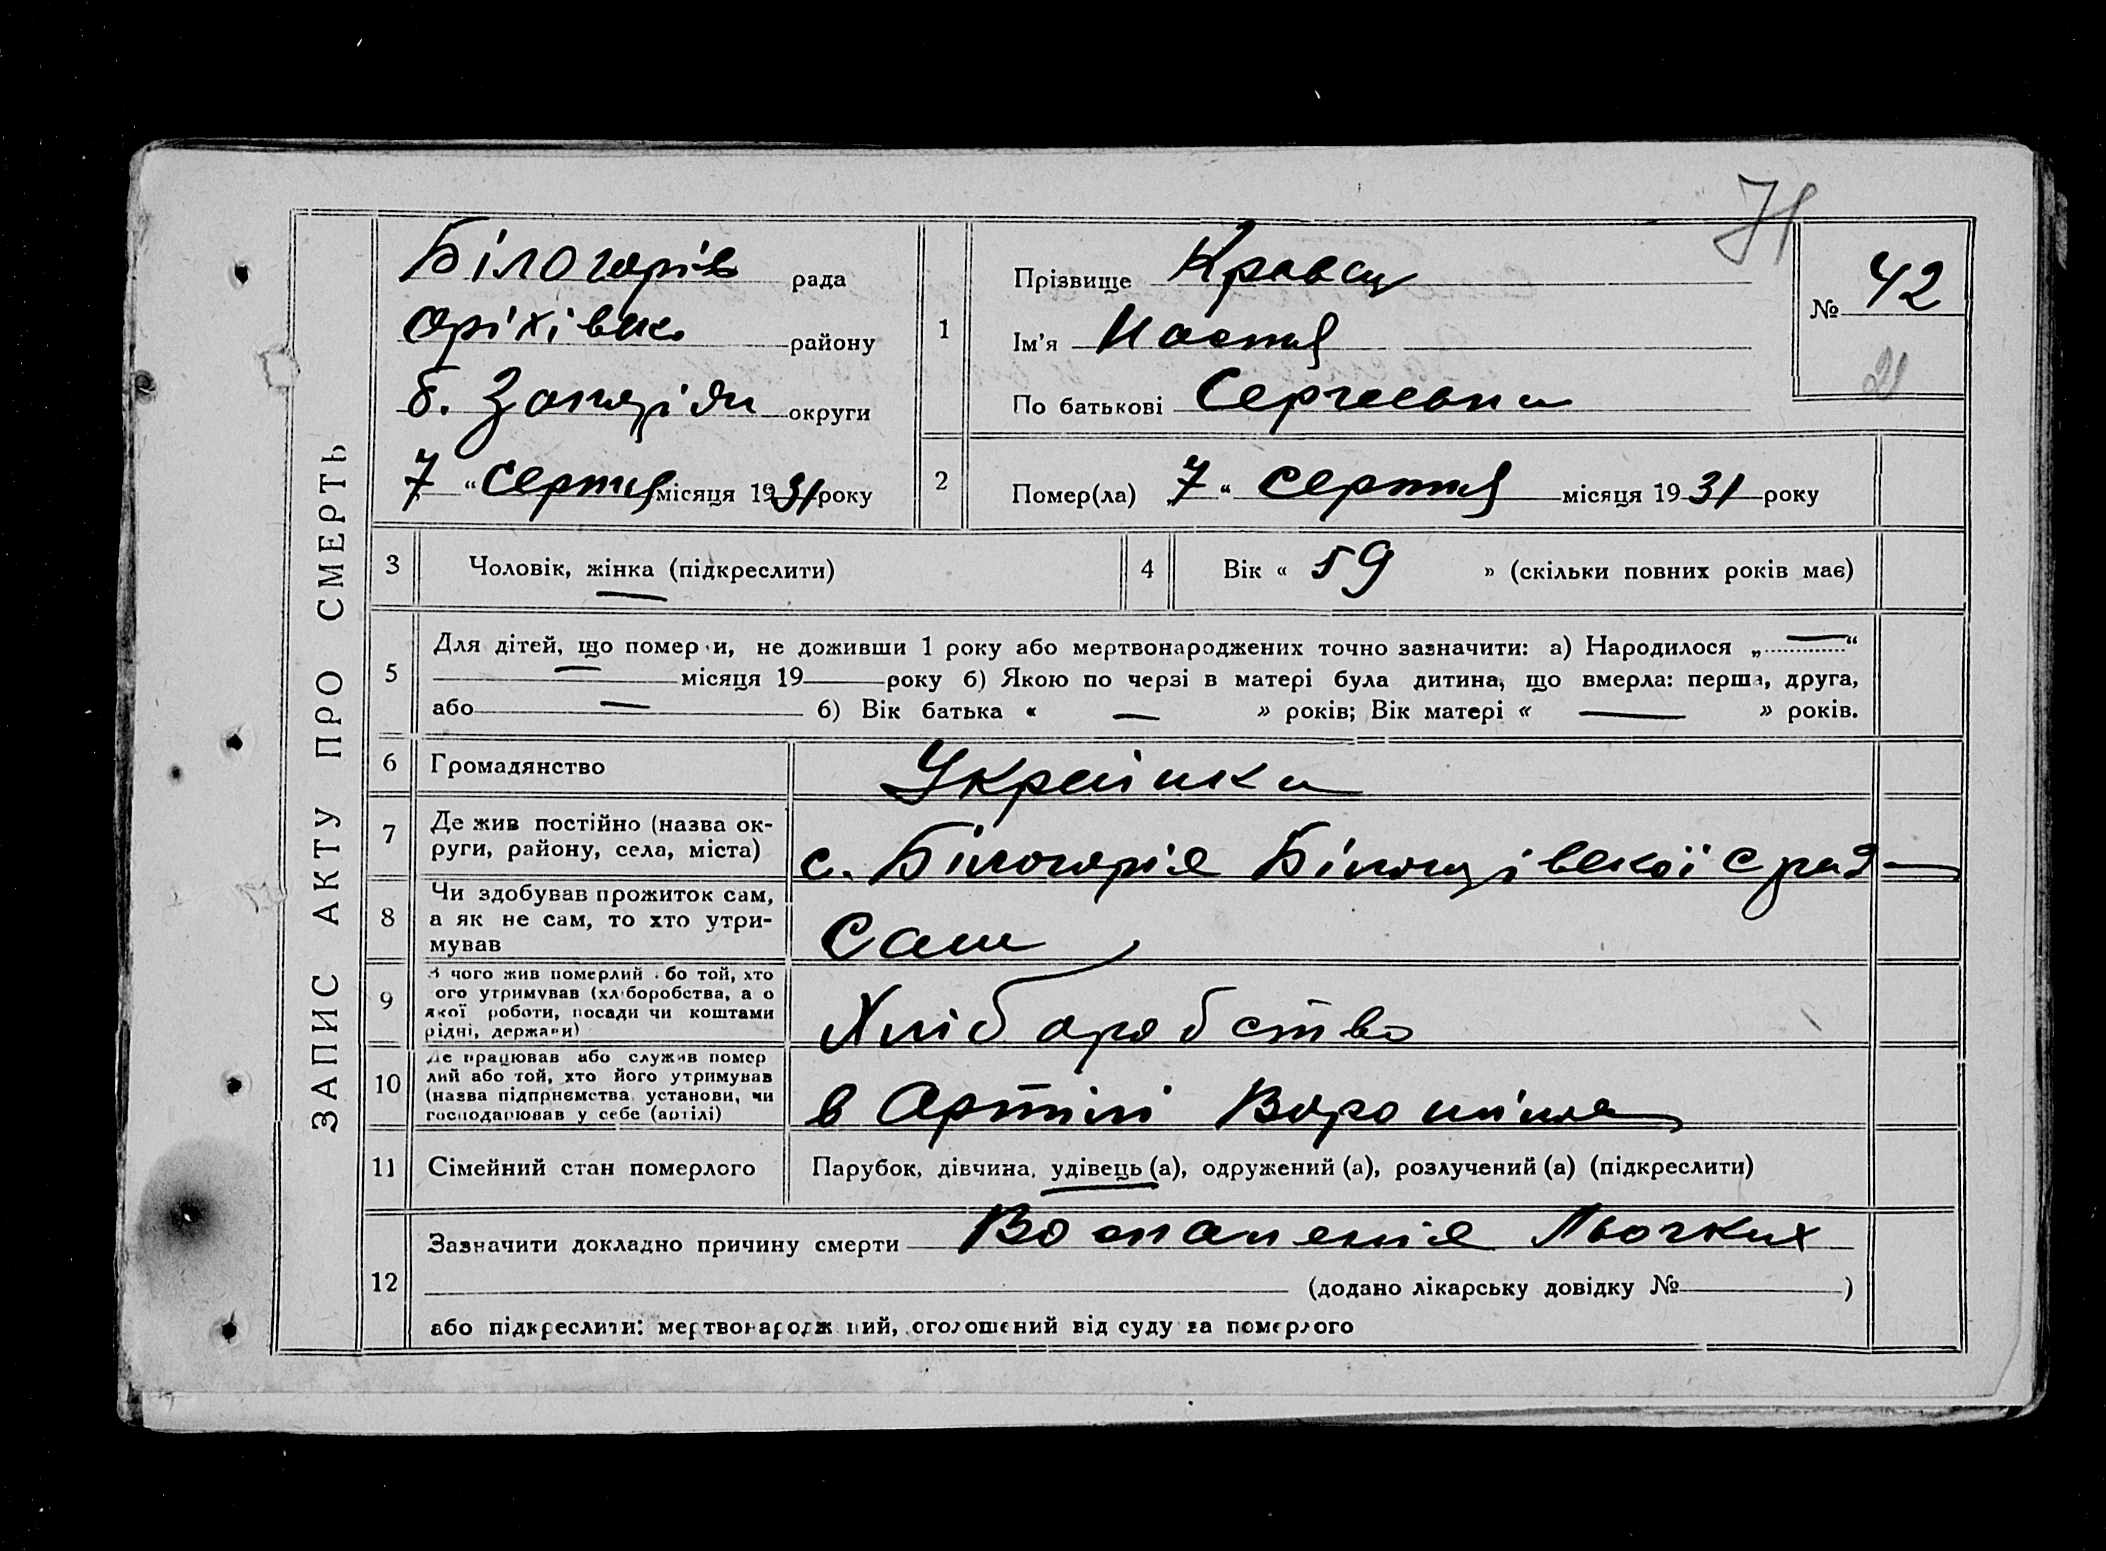 71
ЗАПИС АКТУ ПРО СМЕРТЬ
Білогорів рада
Оріхівськ району
б. Запоріж округи
7 " Серпня місяця 1931 року
1
Прізвище Кравец
Ім'я Настя
По батькові Сергеевна
№ 42
21
2
Помер(ла) 7 " Серпня місяця 1931 року
3 Чоловік, жінка (підкреслити)
4 Вік « 59 » (скільки повних років має)
5
Для дітей, що помер и, не доживши 1 року або мертвонароджених точно зазначити: а) Народилося „ — “
— місяця 19 року б) Якою по черзі в матері була дитина, що вмерла: перша, друга,
або — б) Вік батька « — » років; Вік матері « — » років.
6 Громадянство Українка
7 Де жив постійно (назва ок-
руги, району, села, міста)
с. Білогоріє Білогорівської с рад
8 Чи здобував прожиток сам,
а як не сам, то хто утри-
мував
Сам
9 З чого жив померлий або той, хто
ого утримував (хліборобства, а о
якої роботи, посади чи коштами
рідні, держави)
Хліборобство
10 Де працював або служив помер
лий або той, хто його утримував
(назва підприємства, установи, чи
господарював у себе (артілі)
в Артілі Ворошіла
11 Сімейний стан померлого
Парубок, дівчина, удівець (а), одружений (а), розлучений (а) (підкреслити)
12
Зазначити докладно причину смерти Воспаленіе Льогких
(додано лікарську довідку № )
або підкреслити: мертвонародж ний, оголошений від суду за померлого